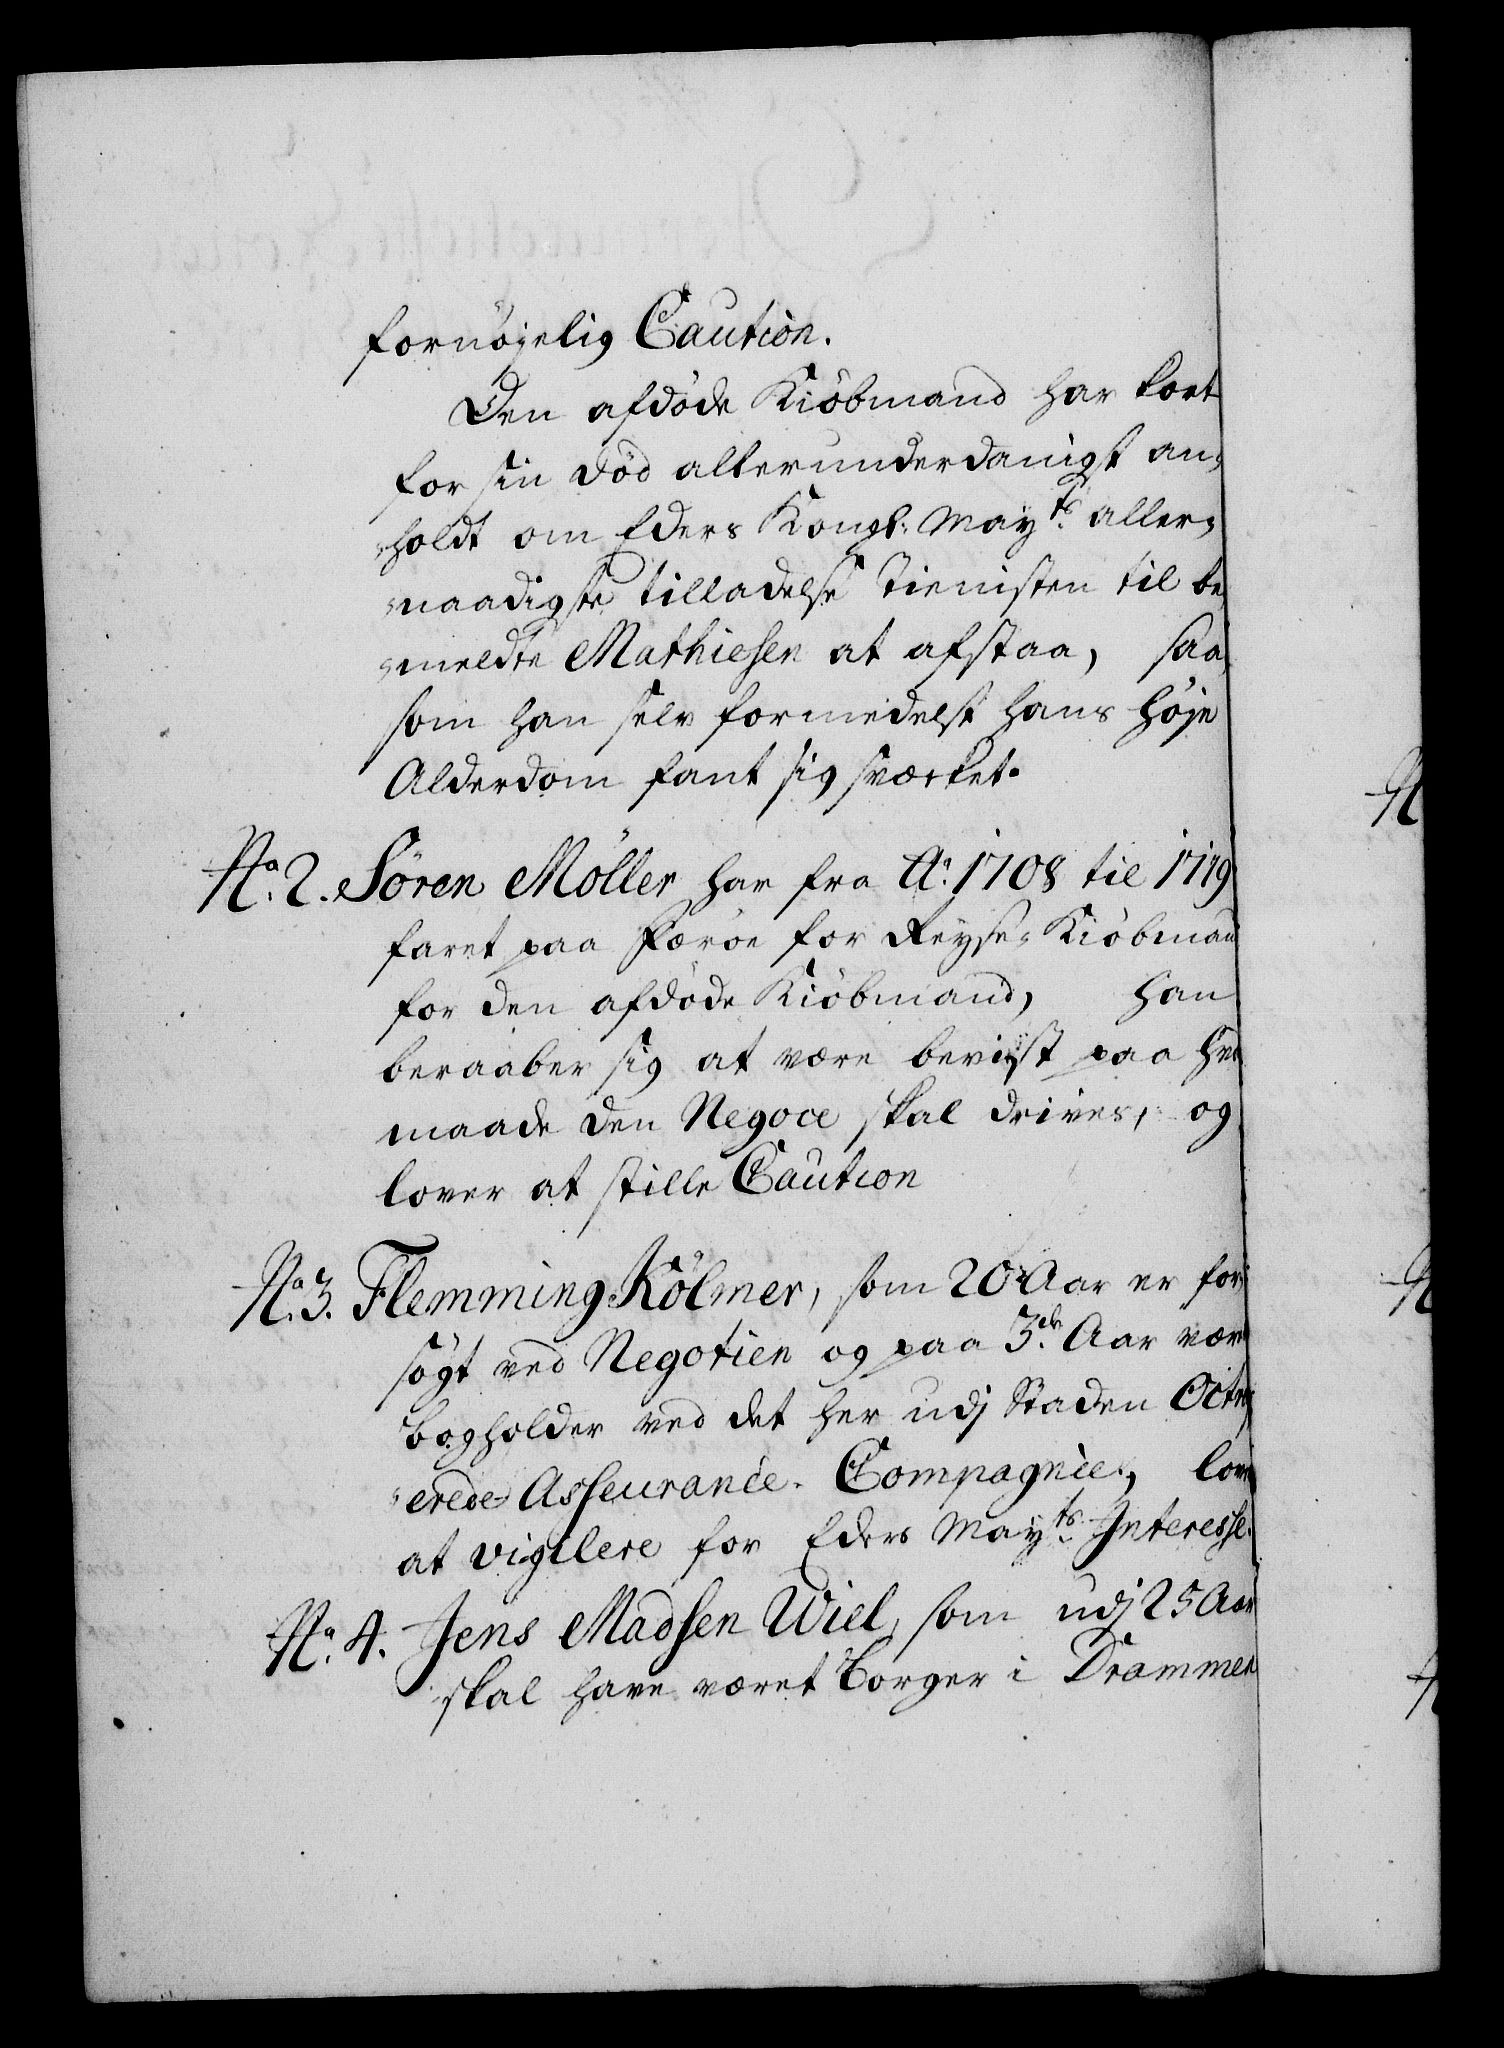 fornøjelig Caution.
Den afdøde Kiøbmand har kort
for sin død allerunderdanigst an-
holdt om Eders Kongl: Mayts: aller-
naadigste tilladelse Tienisten til be
-meldte Mathiesen at afstaa, saa
som han selv formedelst hans høje
Alderdom fant sig svæcket.
No. 2. Søren Møller har fra Ao. 1708 til 1719
faret paa Færøe for Reyse- Kiøbmand
for den afdøde Kiøbmand, han
beraaber sig at være bevist paa hvad
maade den Negoce skal drives, og
lover at stille Caution
No. 3. Flemming Kölmer, som 20 Aar er for-
søgt ved Negotien og paa 3de Aar været
bogholder ved det her udj Staden Octroj
-erede Asseurance Compagnie, lover
at vigilere for Eders Mayts: Interesse.
No. 4. Jens Madsen Wiel, som udj 25 Aar
skal have været borger i Drammen